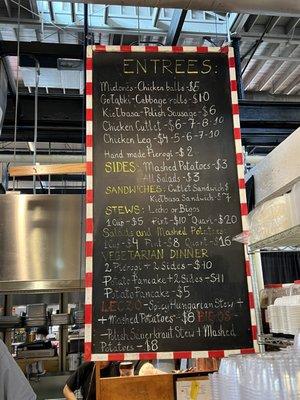 ENTREES:
Mielony-Chicken balls $5
Gołąbki-Cabbage rolls $10
Kiełbasa-Polish Sausage $6
Chicken Cutlet -$6-7-8-10
Chicken Leg -$4-5-6-7-10
Hand made Pierogi - $2
SIDES: Mashed Potatoes $3
All Salads $3
SANDWICHES: Cutlet Sandwich $
Kiełbasa Sandwich $7
STEWS: Lecho or Bigos
1Cup $5 Pint $10 Quart $20
Salads and Mashed Potatoes
1Cup $4 Pint $8 Quart $16
VEGETARIAN DINNER
2 Pierogi + 2 Sides - $10
Potato Pancake + 2 Sides - $11
Potato Pancake - $5
LECHO - Spicy Hungarian Stew +
+ Mashed Potatoes $8 BIGOS
- Polish Sauerkraut Stew + Mashed
Potatoes - $8